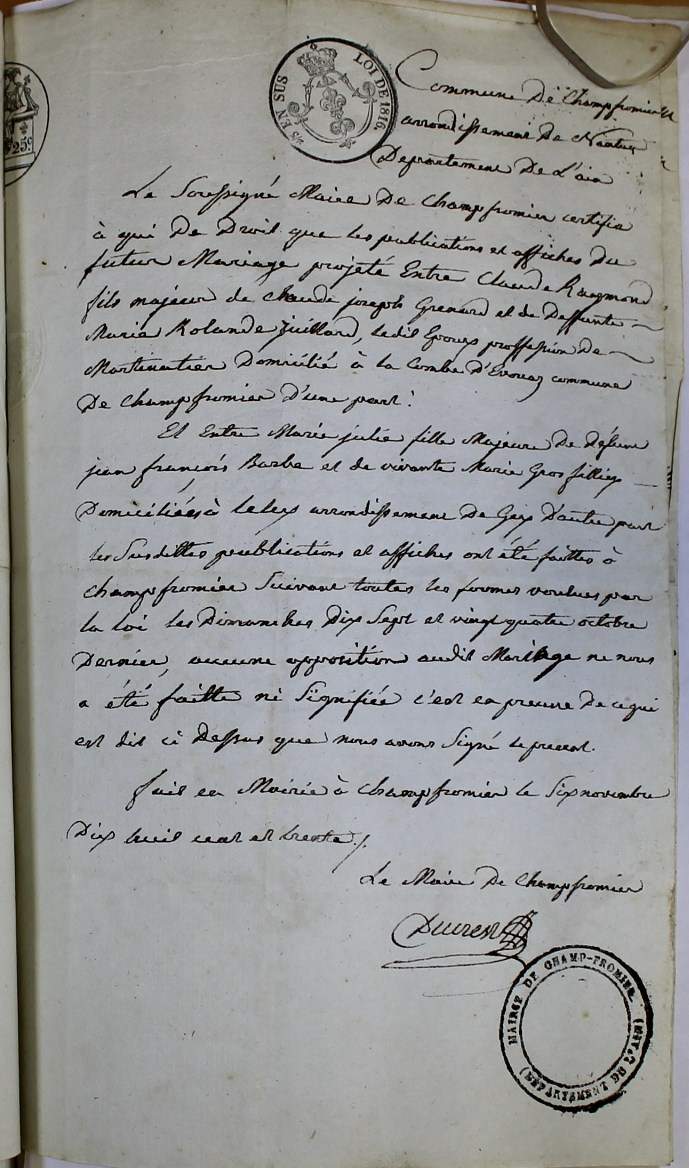 25c
25 EN SUS
LOI DE 1816.
Commune De Champfromier
arrondissement De Nantua
Departement De L'ain
Le Soussigné Maire De Champfromier certifie
à qui De Droit que les publications et affiches Du
futur Mariage projeté Entre Claude Raymond
fils majeur de Claude joseph Grenard et de Deffunte
Maria Rolande juillard, ledit Epoux proffession De
Domicilié à la Combe d'Evouaz commune
De Champfromier D'une part.
Et Entre Marie julie fille Majeure De défunt
jean françois Barbe et de vivante Marie Grosfilliex
Domiciliées à Lelex arrondissement De Gex D'autre part
les Susdittes publications et affiches ont été faittes à
Champfromier Suivant toutes les formes voulues par
la loi les Dimanches Dix Sept et vingt quatre octobre
Dernier, aucune opposition audit Mariage ne nous
a été faitte ni Signifiée c'est en preuve De ce qui
est dit ci Dessus que nous avons Signé le present.
fait en Mairie à Champfromier le Six novembre
Dix huit cent et trente ./.
Le Maire De Champfromier
Ducrest
MAIRIE DE CHAMP-FROMIER
(DÉPARTEMENT DE L'AIN)